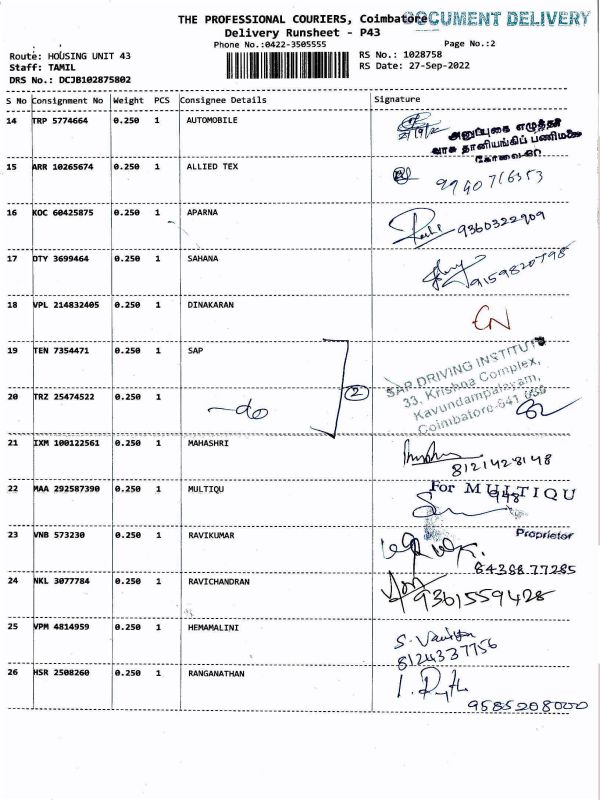 THE PROFESSIONAL COURIERS, Coimbatore
DOCUMENT DELIVERY
Delivery Runsheet - P43
Phone No.:0422-3505555
Page No.:2
Route: HOUSING UNIT 43
RS No.: 1028758
Staff: TAMIL
RS Date: 27-Sep-2022
DRS No.: DCJB102875802
S No Consignment No Weight PCS Consignee Details Signature
14 TRP 5774664 0.250 1 AUTOMOBILE
அனுப்புகை எழுத்தர்
கோவை
15 ARR 10265674 0.250 1 ALLIED TEX
9940716353
16 KOC 60425875 0.250 1 APARNA
9360322909
17 DTY 3699464 0.250 1 SAHANA
9159820798
18 VPL 214832405 0.250 1 DINAKARAN
19 TEN 7354471 0.250 1 SAP
SAP DRIVING INSTITUTE
33, Krishna Complex,
2
20 TRZ 25474522 0.250 1
Kavundampalayam,
~do
Coimbatore-641
21 IXM 100122561 0.250 1 MAHASHRI
8121428148
22 MAA 292587390 0.250 1 MULTIQU
For MULTIQU
23 VNB 573230 0.250 1 RAVIKUMAR
Proprietor
8438877285
24 NKL 3077784 0.250 1 RAVICHANDRAN
9361559428
25 VPM 4814959 0.250 1 HEMAMALINI
8124337756
26 HSR 2508260 0.250 1 RANGANATHAN
9585208000